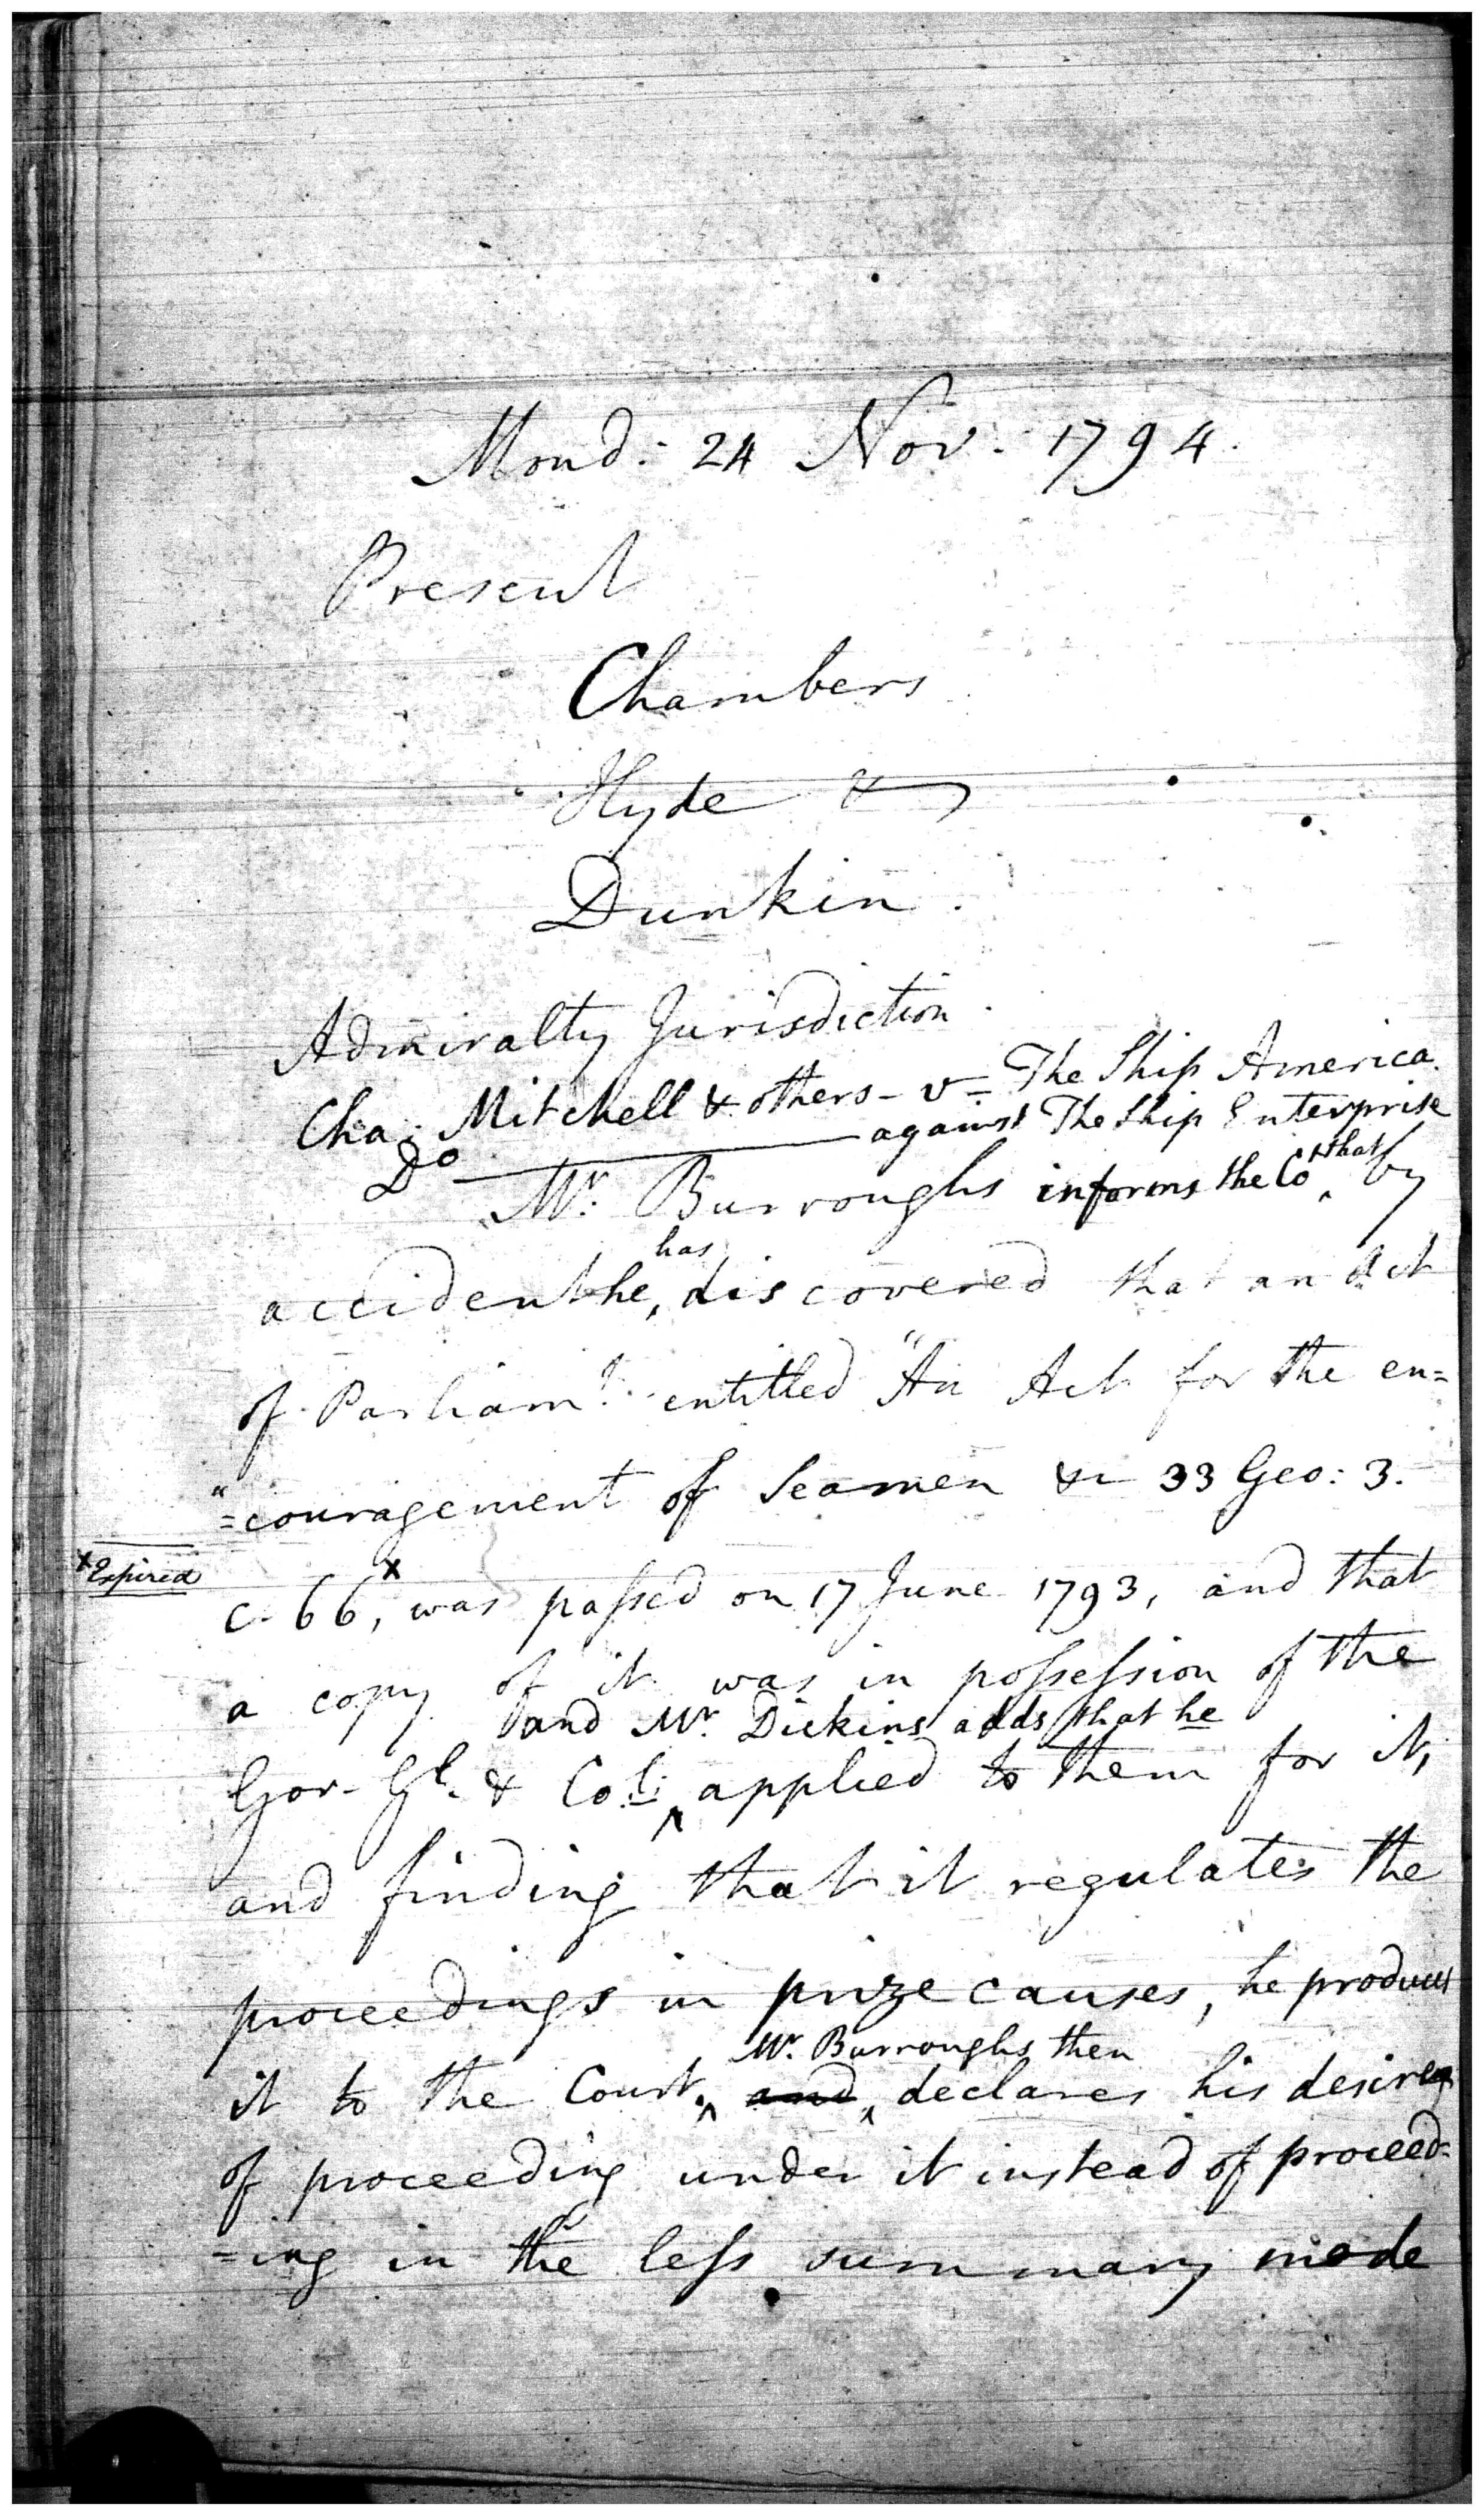 Mond: 24 Nov. 1794.
Present
Chambers
Hyde &
Dunkin.
Admiralty Jurisdiction.
Cha: Mitchell & others - v - The Ship America.
Do ——— against The Ship Enterprise
Mr. Burroughs informs the Cot that by
accident he has discovered that an Act
of Parliamt. entitled "An Act for the en=
"=couragement of Seamen &c 33 Geo: 3.
x Expired
c. 66,x was passed on 17 June 1793, and that
a copy of it was in possession of the
and Mr. Dickins adds that he
Gor. Gl. & Col: ^ applied to them for it,
and finding that it regulates the
proceedings in prize causes, he produces
Mr. Burroughs then
it to the Court. ^ and ^ declares his desire
of proceeding under it instead of proceed=
=ing in the less summary mode